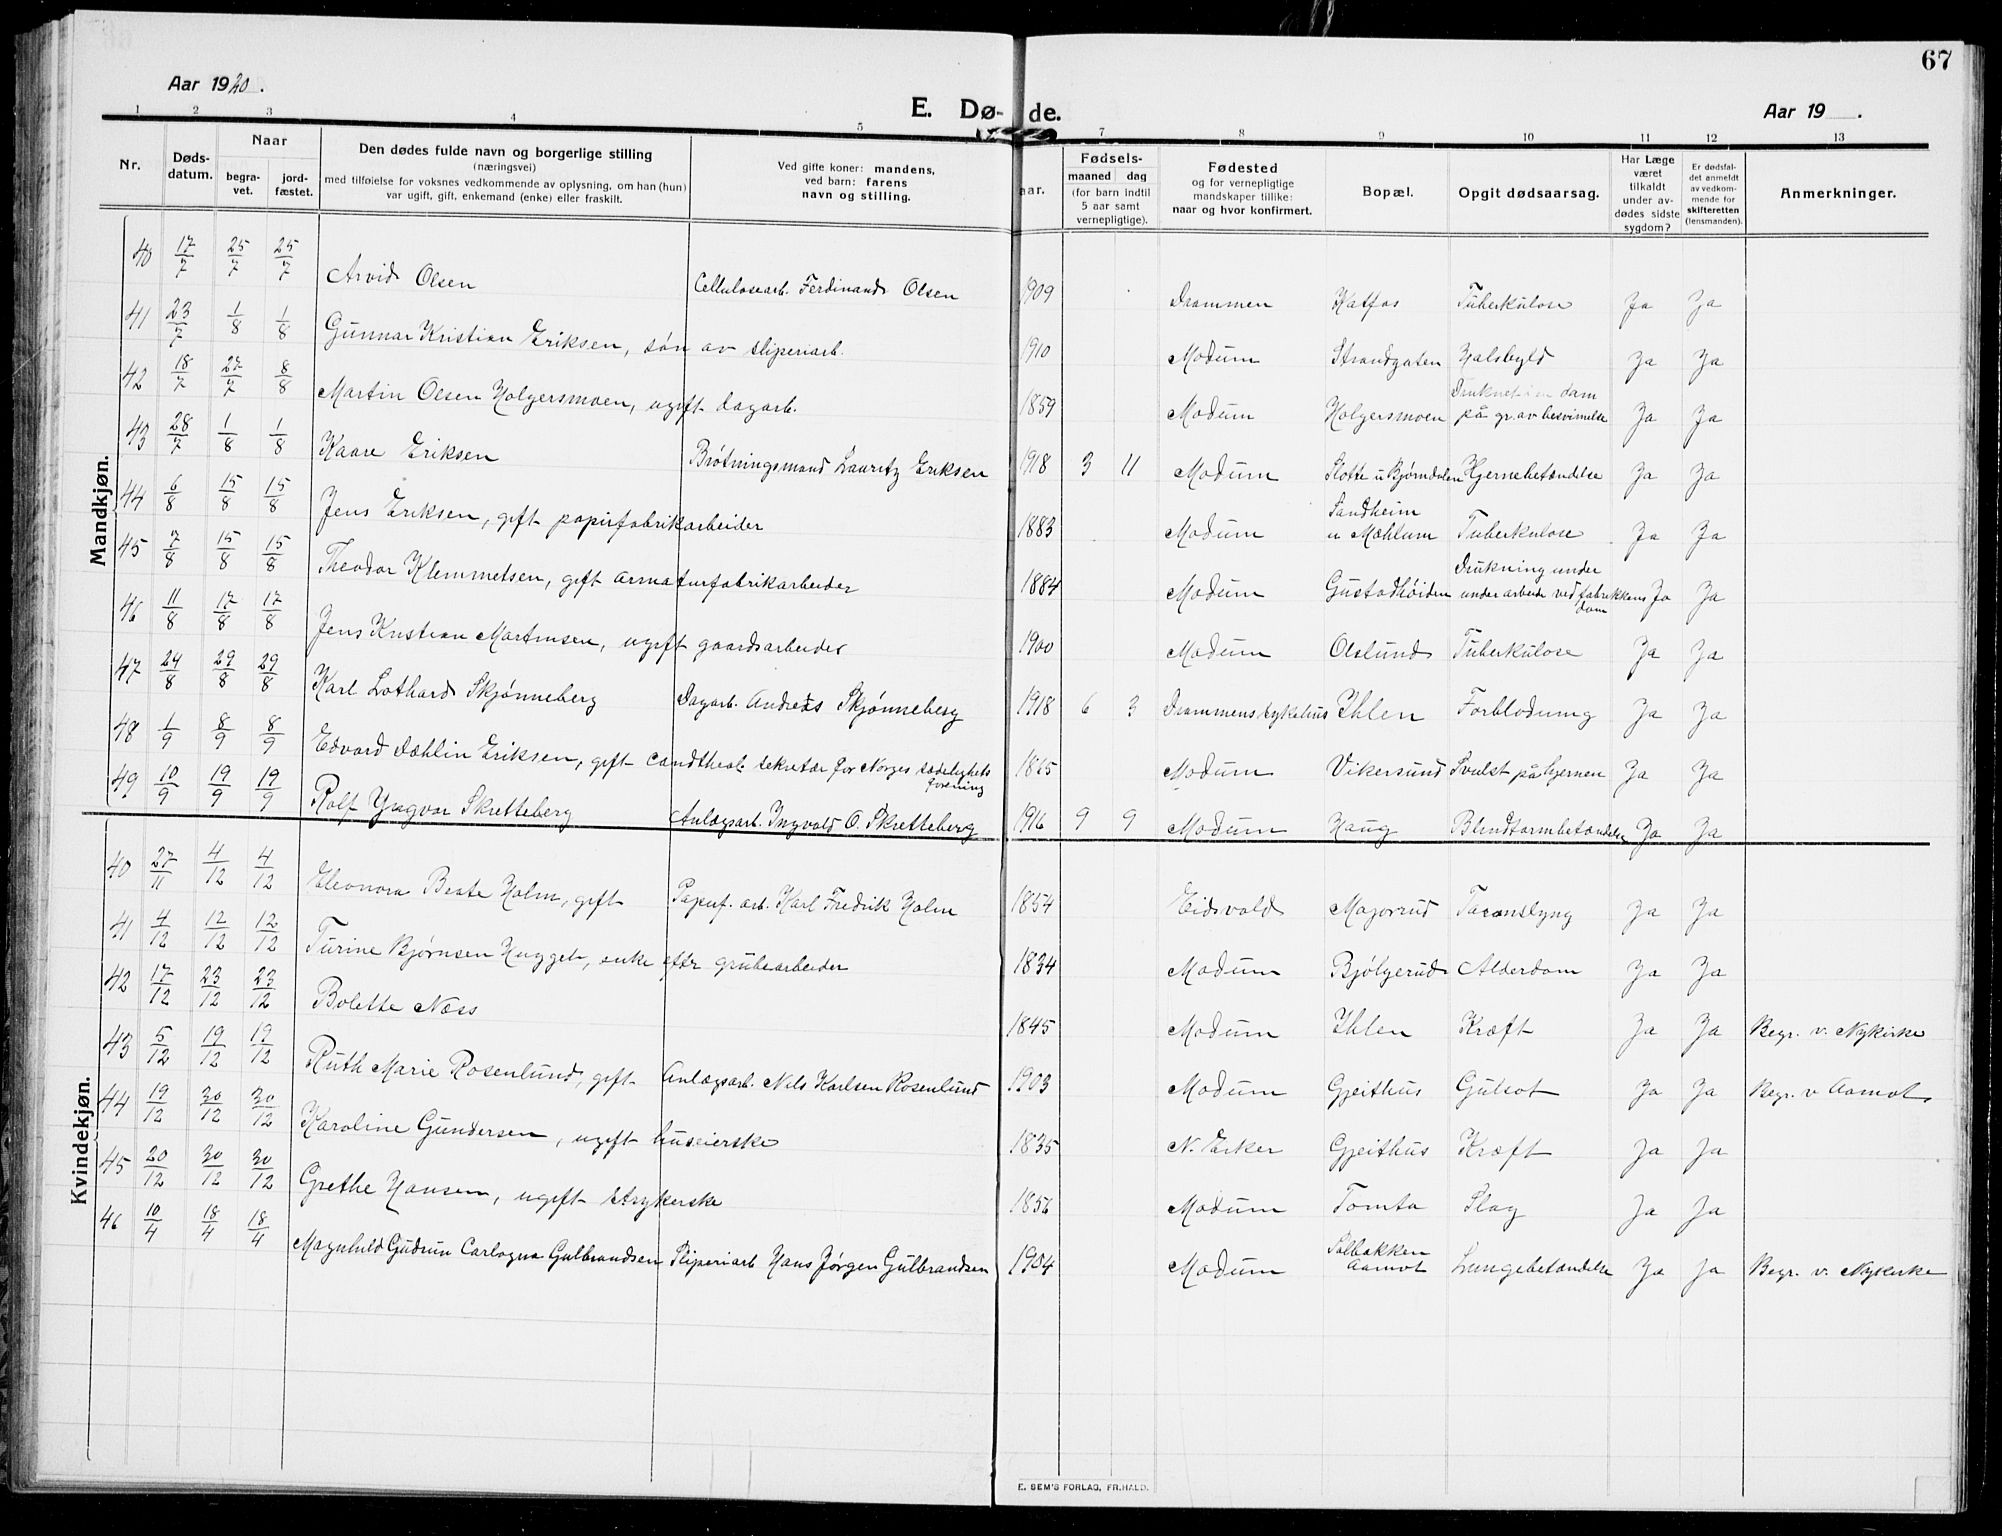 67
Aar 1920.
E. Dø- de.
Aar 19 .
1 2 3 4 5 7 8 9 10 11 12 13
Nr.
Døds-datum.
Naar
begra-vet.
jord-fæstet.
Den dødes fulde navn og borgerlige stilling
(næringsvei)
med tilføielse for voksnes vedkommende av oplysning, om han (hun)
var ugift, gift, enkemand (enke) eller fraskilt.
Ved gifte koner: mandens,
ved barn: farens
navn og stilling.
aar.
Fødsels-
maaned dag
(for barn indtil
5 aar samt
vernepligtige).
Fødested
og for vernepligtige
mandskaper tillike:
naar og hvor konfirmert.
Bopæl.
Opgit dødsaarsag.
Har Læge
været
tilkaldt
under av-
dødes sidste
sygdom?
Er dødsfal-
det anmeldt
av vedkom-
mende for
skifteretten
(lensmanden).
Anmerkninger.
Mandkjøn.
40 17/7 25/7 25/7 Arvid Olsen Cellulosearb. Ferdinand Olsen 1909 Drammen Katfos Tuberkulose Ja Ja
41 23/7 1/8 1/8 Gunnar Kristian Eriksen, søn av sliperiarb. 1910 Modum Strandgaten Halsbyld Ja Ja
42 18/7 27/7 8/8 Martin Olsen Holgersmoen, ugift dagarb. 1859 Modum Holgersmoen Druknet i en dam
på gr. av besvimelse Ja Ja
43 28/7 1/8 1/8 Kaare Eriksen Brøtningsmand Lauritz Eriksen 1918 3 11 Modum Slotte u Bjørndalen Hjernebetændelse Ja Ja
44 6/8 15/8 15/8 Jens Eriksen, gift papirfabrikarbeider 1883 Modum Sandheim
u Mæhlum Tuberkulose Ja Ja
45 7/8 15/8 15/8 Theodor Klemmetsen, gift armaturfabrikarbeider 1884 Modum Gustadhøiden Drukning under
under arbeide ved fabrikkens
dam Ja Ja
46 11/8 17/8 17/8 Jens Kristian Martinsen, ugift gaardsarbeider 1900 Modum Olslund Tuberkulose Ja Ja
47 24/8 29/8 29/8 Karl Lothard Skjønneberg Dagarb. Andreas Skjønneberg 1918 6 3 Drammens sykehus Ihlen Forblødning Ja Ja
48 1/9 8/9 8/9 Edvard Dæhlin Eriksen, gift candtheol. sekretær for Norges sædelighets
forening 1865 Modum Vikersund Svulst på hjernen Ja Ja
49 10/9 19/9 19/9 Rolf Yngvar Skretteberg Anlægsarb. Ingvald O. Skretteberg 1916 9 9 Modum Haug Blindtarmbetændelse Ja Ja
Kvindekjøn.
40 27/11 4/12 4/12 Eleonora Beate Holm, gift Papirf. arb. Karl Fredrik Holm 1854 Eidsvold Magorrud Ja Ja
41 4/12 12/12 12/12 Turine Bjørnsen Hugget, enke efter grubearbeider 1834 Modum Bjølgerud Alderdom Ja Ja
42 17/12 23/12 23/12 Bolette Næss 1845 Modum Ihlen Kræft Ja Ja Begr. v. Nykirke
43 5/12 19/12 19/12 Ruth Marie Rosenlund, gift Anlægsarb. Nils Karlsen Rosenlund 1903 Modum Gjeithus Gulsot Ja Ja Begr. v Aamot.
44 19/12 30/12 30/12 Karoline Gundersen, ugift huseierske 1835 N. Eiker Gjeithus Kræft Ja Ja
45 20/12 30/12 30/12 Grethe Hansen, ugift strykerske 1856 Modum Tomta Slag Ja Ja
46 10/4 18/4 18/4 Magnhild Gudrun Carlogna Gulbrandsen Sliperiarb Hans Jørgen Gulbrandsen 1904 Modum Solbakken
Aamot Lungebetændelse Ja Ja Begr. v. Nykirke
E. SEM'S FORLAG, FR.HALD.